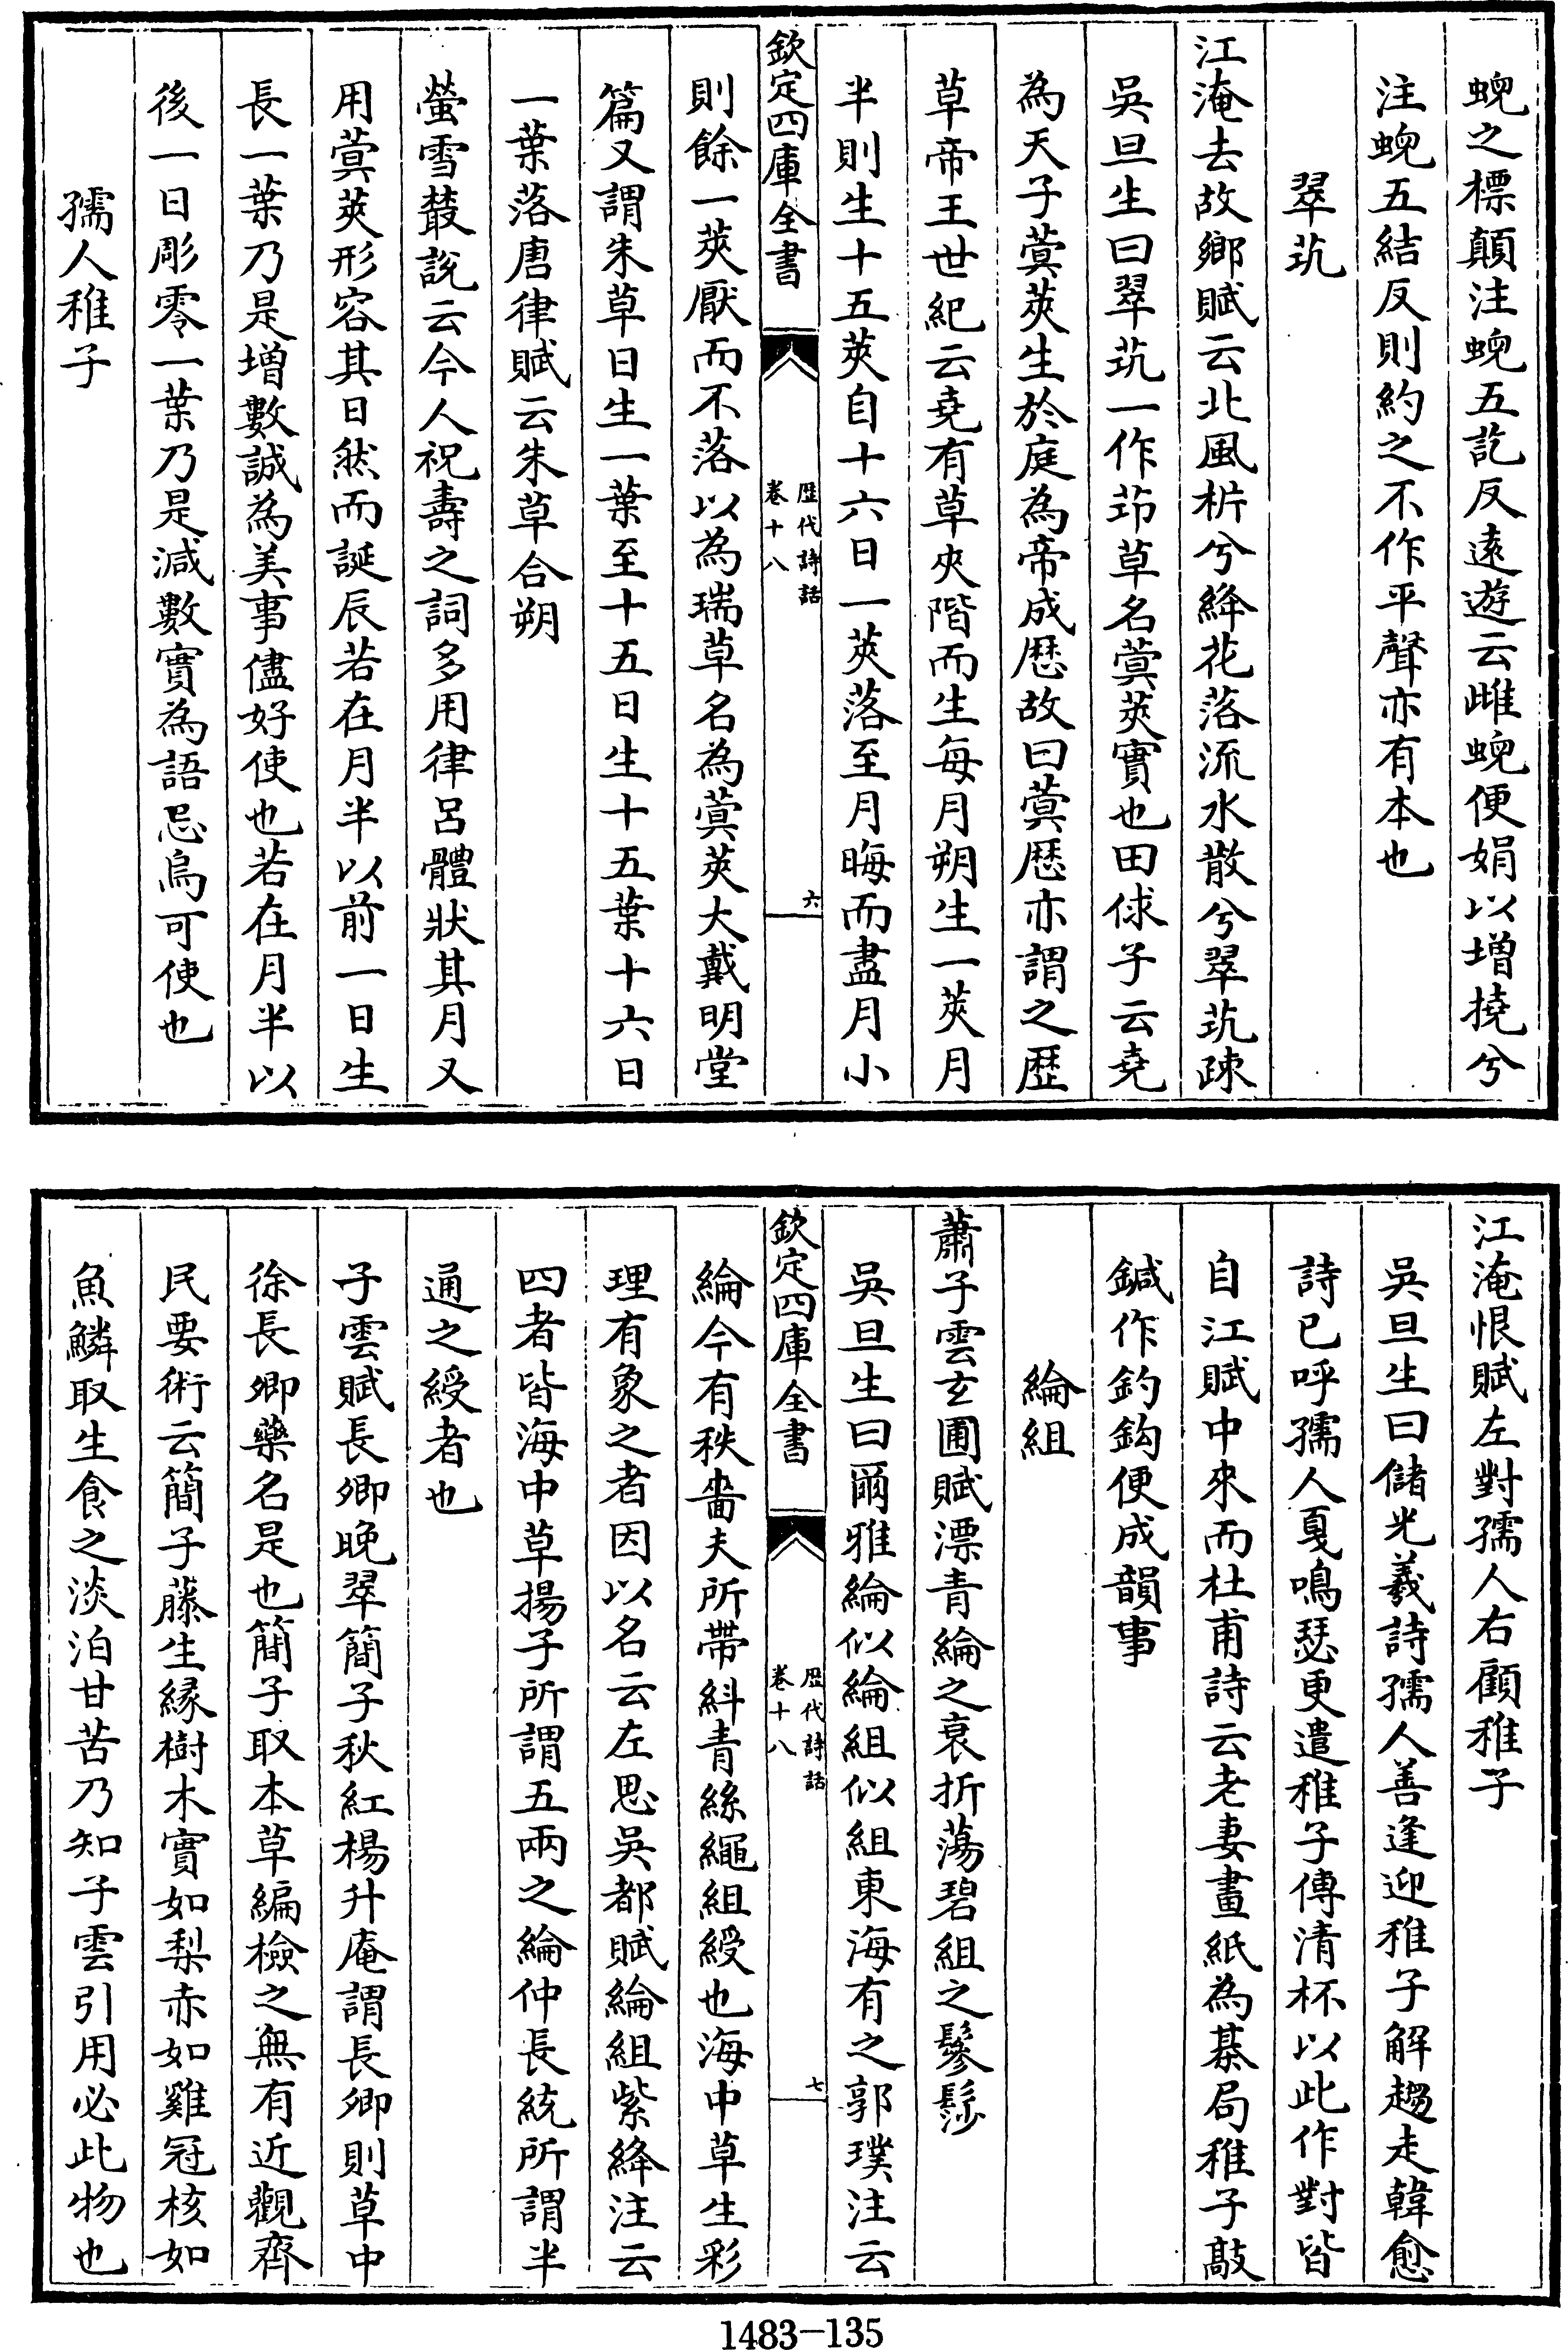 蜺之標顛注蜺五訖反遠遊云雌蜺便娟以增撓兮
注蜺五結反則約之不作平聲亦有本也
翠艽
江淹去故鄉賦云北風㭊兮絳花落流水散兮翠艽疎
吳旦生曰翠艽一作茚草名蓂莢實也田俅子云堯
為天子蓂莢生於庭為帝成厯故曰蓂厯亦謂之歴
草帝王世紀云堯有草夾階而生每月朔生一莢月
半則生十五莢自十六日一莢落至月晦而盡月小
欽定四庫全書
歴代詩話
卷十八
六
則餘一莢厭而不落以為瑞草名為蓂莢大戴明堂
篇又謂朱草日生一葉至十五日生十五葉十六日
一葉落唐律賦云朱草合朔
螢雪䕺說云今人祝壽之詞多用律呂體狀其月又
用蓂莢形容其日然而誕辰若在月半以前一日生
長一葉乃是增數誠為美事儘好使也若在月半以
後一日彫零一葉乃是減數實為語忌烏可使也
孺人稚子
江淹恨賦左對孺人右顧稚子
吳旦生曰儲光羲詩孺人善逢迎稚子解趨走韓愈
詩已呼孺人戛鳴瑟更遣稚子傳清杯以此作對皆
自江賦中來而杜甫詩云老妻畫紙為棊局稚子敲
鍼作釣鈎便成韻事
綸組
蕭子雲玄圃賦漂青綸之衰折蕩碧組之鬖髿
吳旦生曰爾雅綸似綸組似組東海有之郭璞注云
欽定四庫全書
歴代詩話
卷十八
七
綸今有秩嗇夫所帶糾青絲繩組綬也海中草生彩
理有象之者因以名云左思吳都賦綸組紫絳注云
四者皆海中草揚子所謂五兩之綸仲長統所謂半
通之綬者也
子雲賦長卿晚翠簡子秋紅楊升庵謂長卿則草中
徐長卿藥名是也簡子取本草編檢之無有近觀齊
民要術云簡子藤生緣樹木實如梨赤如雞冠核如
魚鱗取生食之淡泊甘苦乃知子雲引用必此物也
1483-135